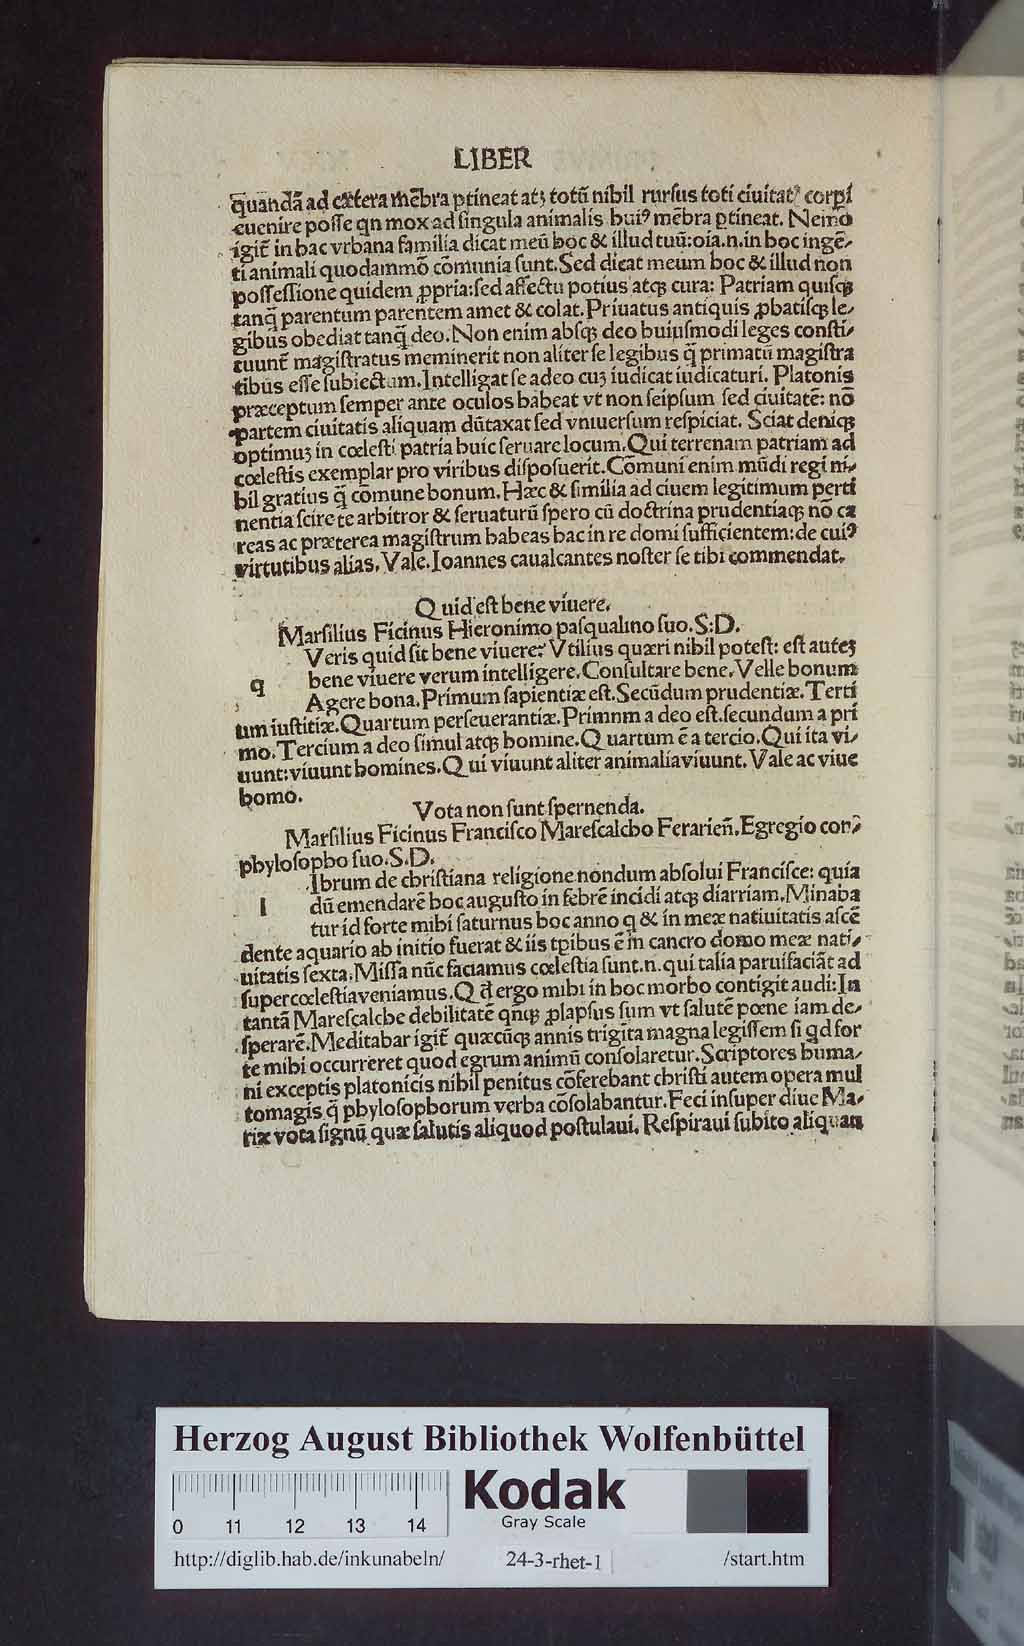 LIBER
quandã ad cætera mẽbra ꝑtineat atꝫ totũ nihil rursus toti ciuitatꝰ corpi
euenire posse qn mox ad singula animalis huiꝰ mẽbra ꝑtineat. Nemo
igit̃ in hac vrbana familia dicat meũ hoc & illud tuũ: oia.n.in hoc ingẽ-
ti animali quodammõ cõmunia sunt. Sed dicat meum hoc & illud non
possessione quidem ꝓpria: sed affectu potius atqꝫ cura: Patriam quisqꝫ
tanq̃ parentum parentem amet & colat. Priuatus antiquis ꝓbatisqꝫ le-
gibus obediat tanq̃ deo. Non enim absqꝫ deo huiusmodi leges consti-
tuunt̃ magistratus meminerit non aliter se legibus q̃ primatũ magistra
tibus esse subiectam. Intelligat se adeo cuꝫ iudicat iudicaturi. Platonis
præceptum semper ante oculos habeat vt non seipsum sed ciuitatẽ: nõ
partem ciuitatis aliquam dũtaxat sed vniuersum respiciat. Sciat deniqꝫ
optimuꝫ in cœlesti patria huic seruare locum. Qui terrenam patriam ad
cœlestis exemplar pro viribus disposuerit. Cõmuni enim mũdi regi ni-
hil gratius q̃ cõmune bonum. Hæc & similia ad ciuem legitimum perti
nentia scire te arbitror & seruaturũ spero cũ doctrina prudentiaqꝫ nõ ca
reas ac præterea magistrum habeas hac in re domi sufficientem: de cuiꝰ
virtutibus alias. Vale. Ioannes caualcantes noster se tibi commendat.
Quid est bene viuere.
Marsilius Ficinus Hieronimo pasqualino suo. S:D.
Veris quid sit bene viuere: Vtilius quæri nihil potest: est auteꝫ
q bene viuere verum intelligere. Consultare bene. Velle bonum
Agere bona. Primum sapientiæ est. Secũdum prudentiæ. Terti
um iustitiæ. Quartum perseuerantiæ. Primnm a deo est. secundum a pri
mo. Tercium a deo simul atqꝫ homine. Quartum ẽ a tercio. Qui ita vi-
uunt: viuunt homines. Qui viuunt aliter animalia viuunt. Vale ac viue
homo.
Vota non sunt spernenda.
Marsilius Ficinus Francisco Marescalcho Ferarieñ. Egregio con-
phylosopho suo. S.D.
Ibrum de christiana religione nondum absolui Francisce: quia
l dũ emendarẽ hoc augusto in febrẽ incidi atqꝫ diarriam. Minaba
tur id forte mihi saturnus hoc anno q & in meæ natiuitatis ascẽ
dente aquario ab initio fuerat & iis tꝑibus ẽ in cancro domo meæ nati-
uitatis sexta. Missa nũc faciamus cœlestia sunt.n. qui talia paruifaciãt ad
supercœlestia veniamus. Qd̃ ergo mihi in hoc morbo contigit audi: In
tantã Marescalche debilitatẽ qñqꝫ ꝓlapsus sum vt salutẽ pœne iam de-
sperarẽ. Meditabar igit̃ quæcũqꝫ annis triginta magna legissem si qd for
te mihi occurreret quod egrum animũ consolaretur. Scriptores huma-
ni exceptis platonicis nihil penitus cõferebant christi autem opera mul
tomagis q̃ phylosophorum verba cõsolabantur. Feci insuper diue Ma-
riæ vota signũ quæ salutis aliquod postulaui. Respiraui subito aliquan
Herzog August Bibliothek Wolfenbüttel
0 11 12 13 14
Kodak
Gray Scale
http://diglib.hab.de/inkunabeln/ 24-3-rhet-1 /start.htm